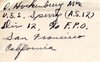 D. Hockenberg M1c
U.S.S. Sperry (A.S. 12)
Div 12, To F.P.O.
San Francisco
California